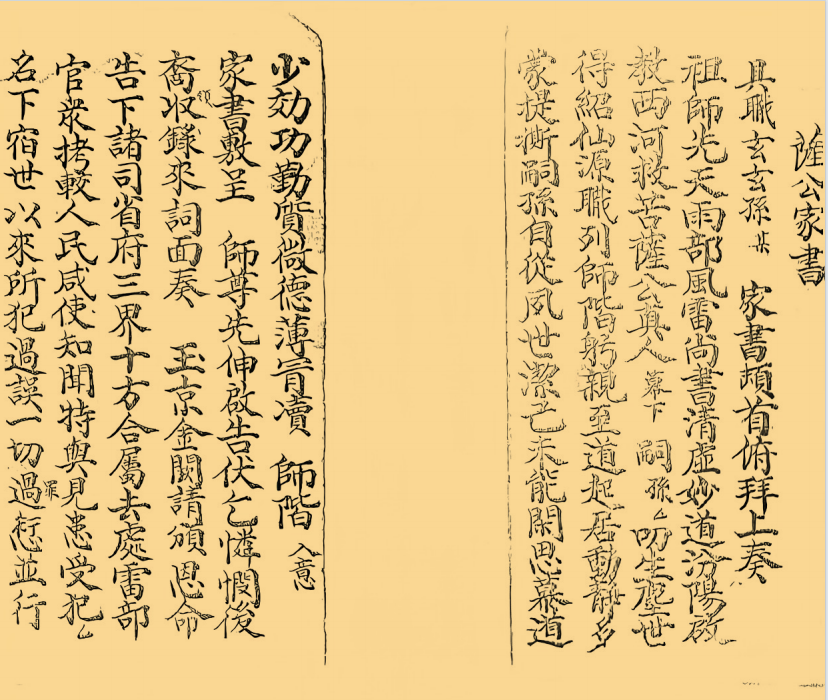 薩公家書
具職玄玄孫某 家書頓首俯拜上奏
祖師先天雨部風雷尚書清虛妙道汾陽啟
教西河救苦薩公真人幕下 嗣孫厶叨生塵世
得紹仙源職列師階躬親至道起居動靜多
蒙提撕嗣孫自從夙世潔己未能閑思慕道
少効功勤質微德薄冐瀆 師階入意
家書敷呈 師尊先伸啟告伏乞憐憫後
裔收錄來詞面奏 玉京金闕請頒恩命
領
告下諸司省府三界十方合屬去處雷部
官衆拷較人民咸使知聞特與見患受犯厶
名下宿世以來所犯過誤一切過愆並行
罪